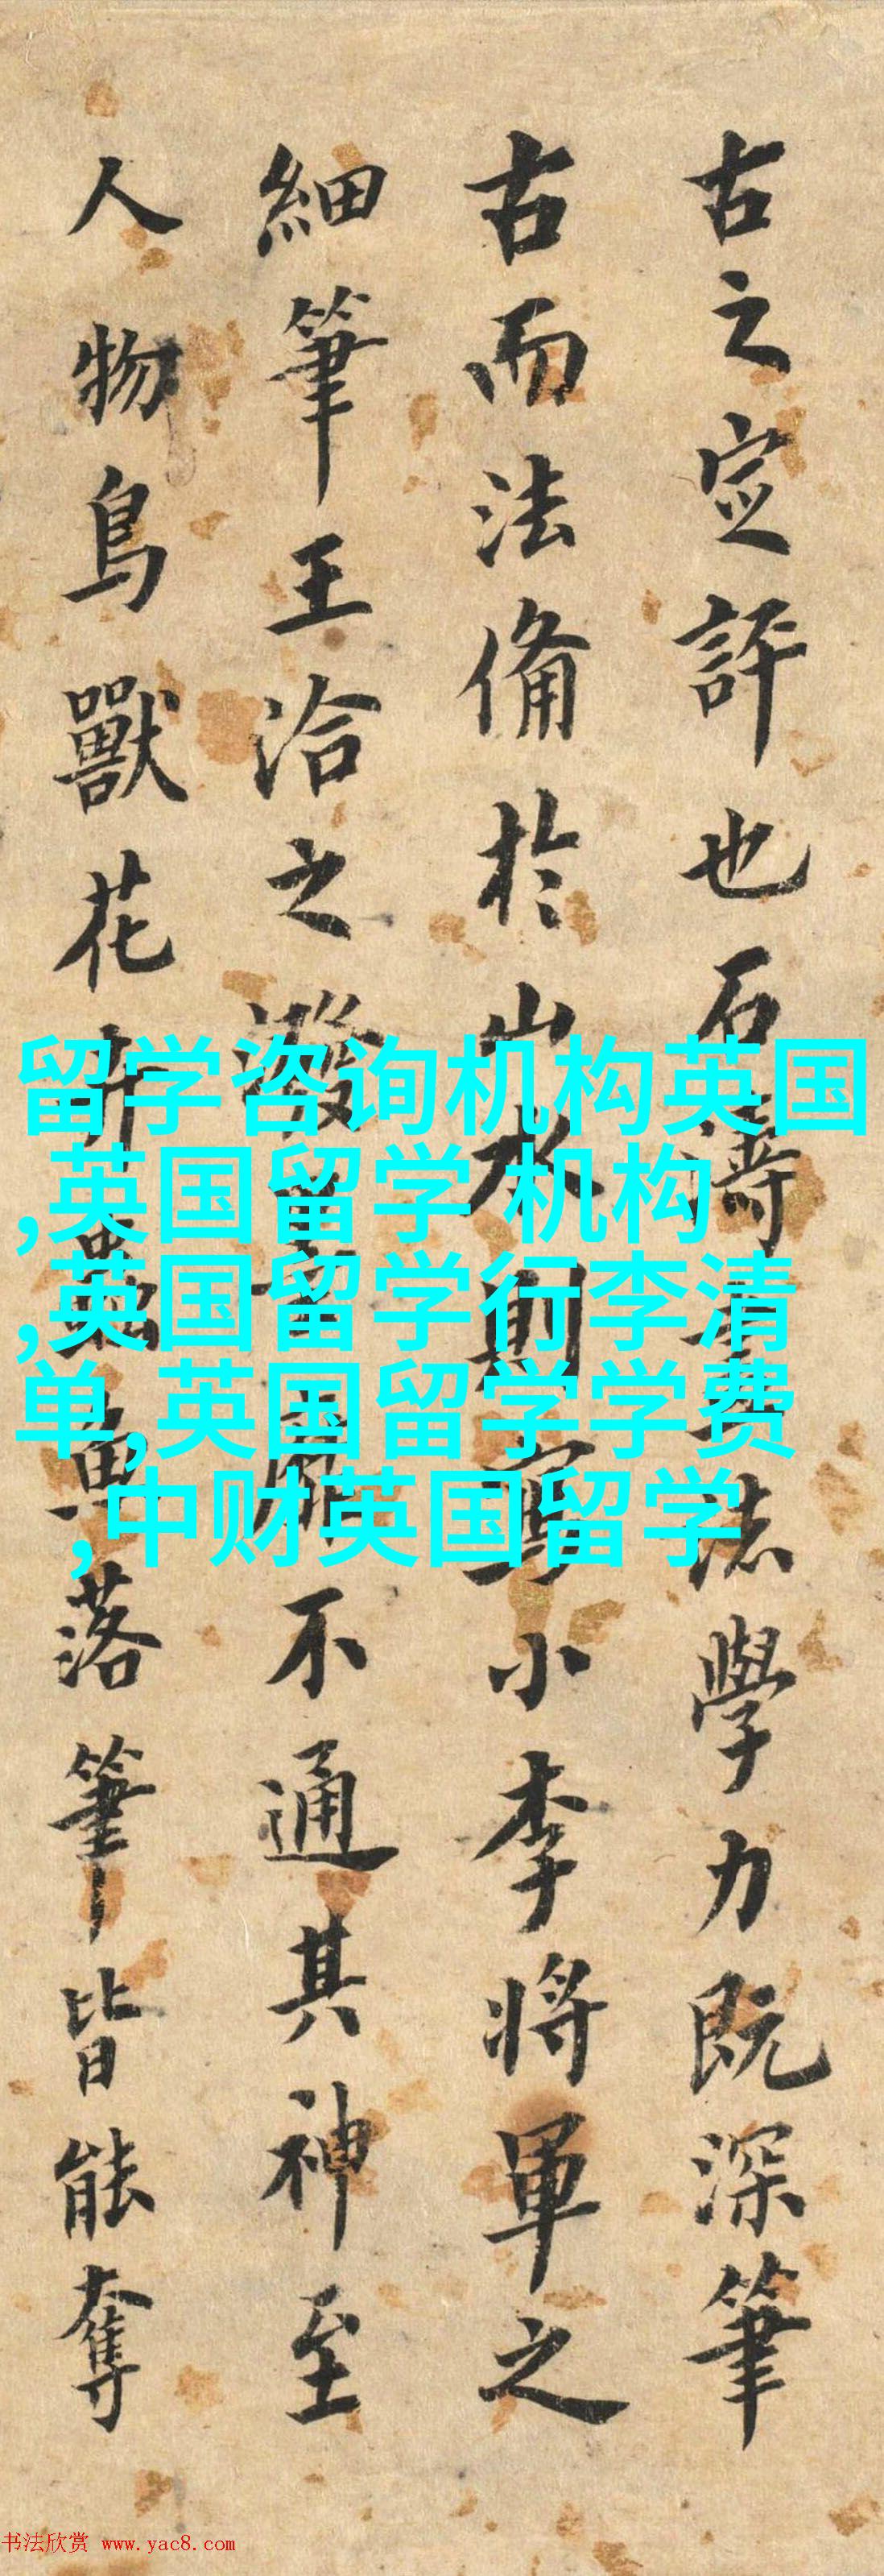 古之定評也石濤書法學力既深筆
古而法備於山水則寫小李將軍之
細筆王洽之潑墨靡不通其神至
人物鳥獸花卉蟲魚落筆皆能奪
留学咨询机构英国
,英国留学 机构
,英国留学行李清
单,英国留学学费
,中财英国留学
书法欣赏 www.yac8.com